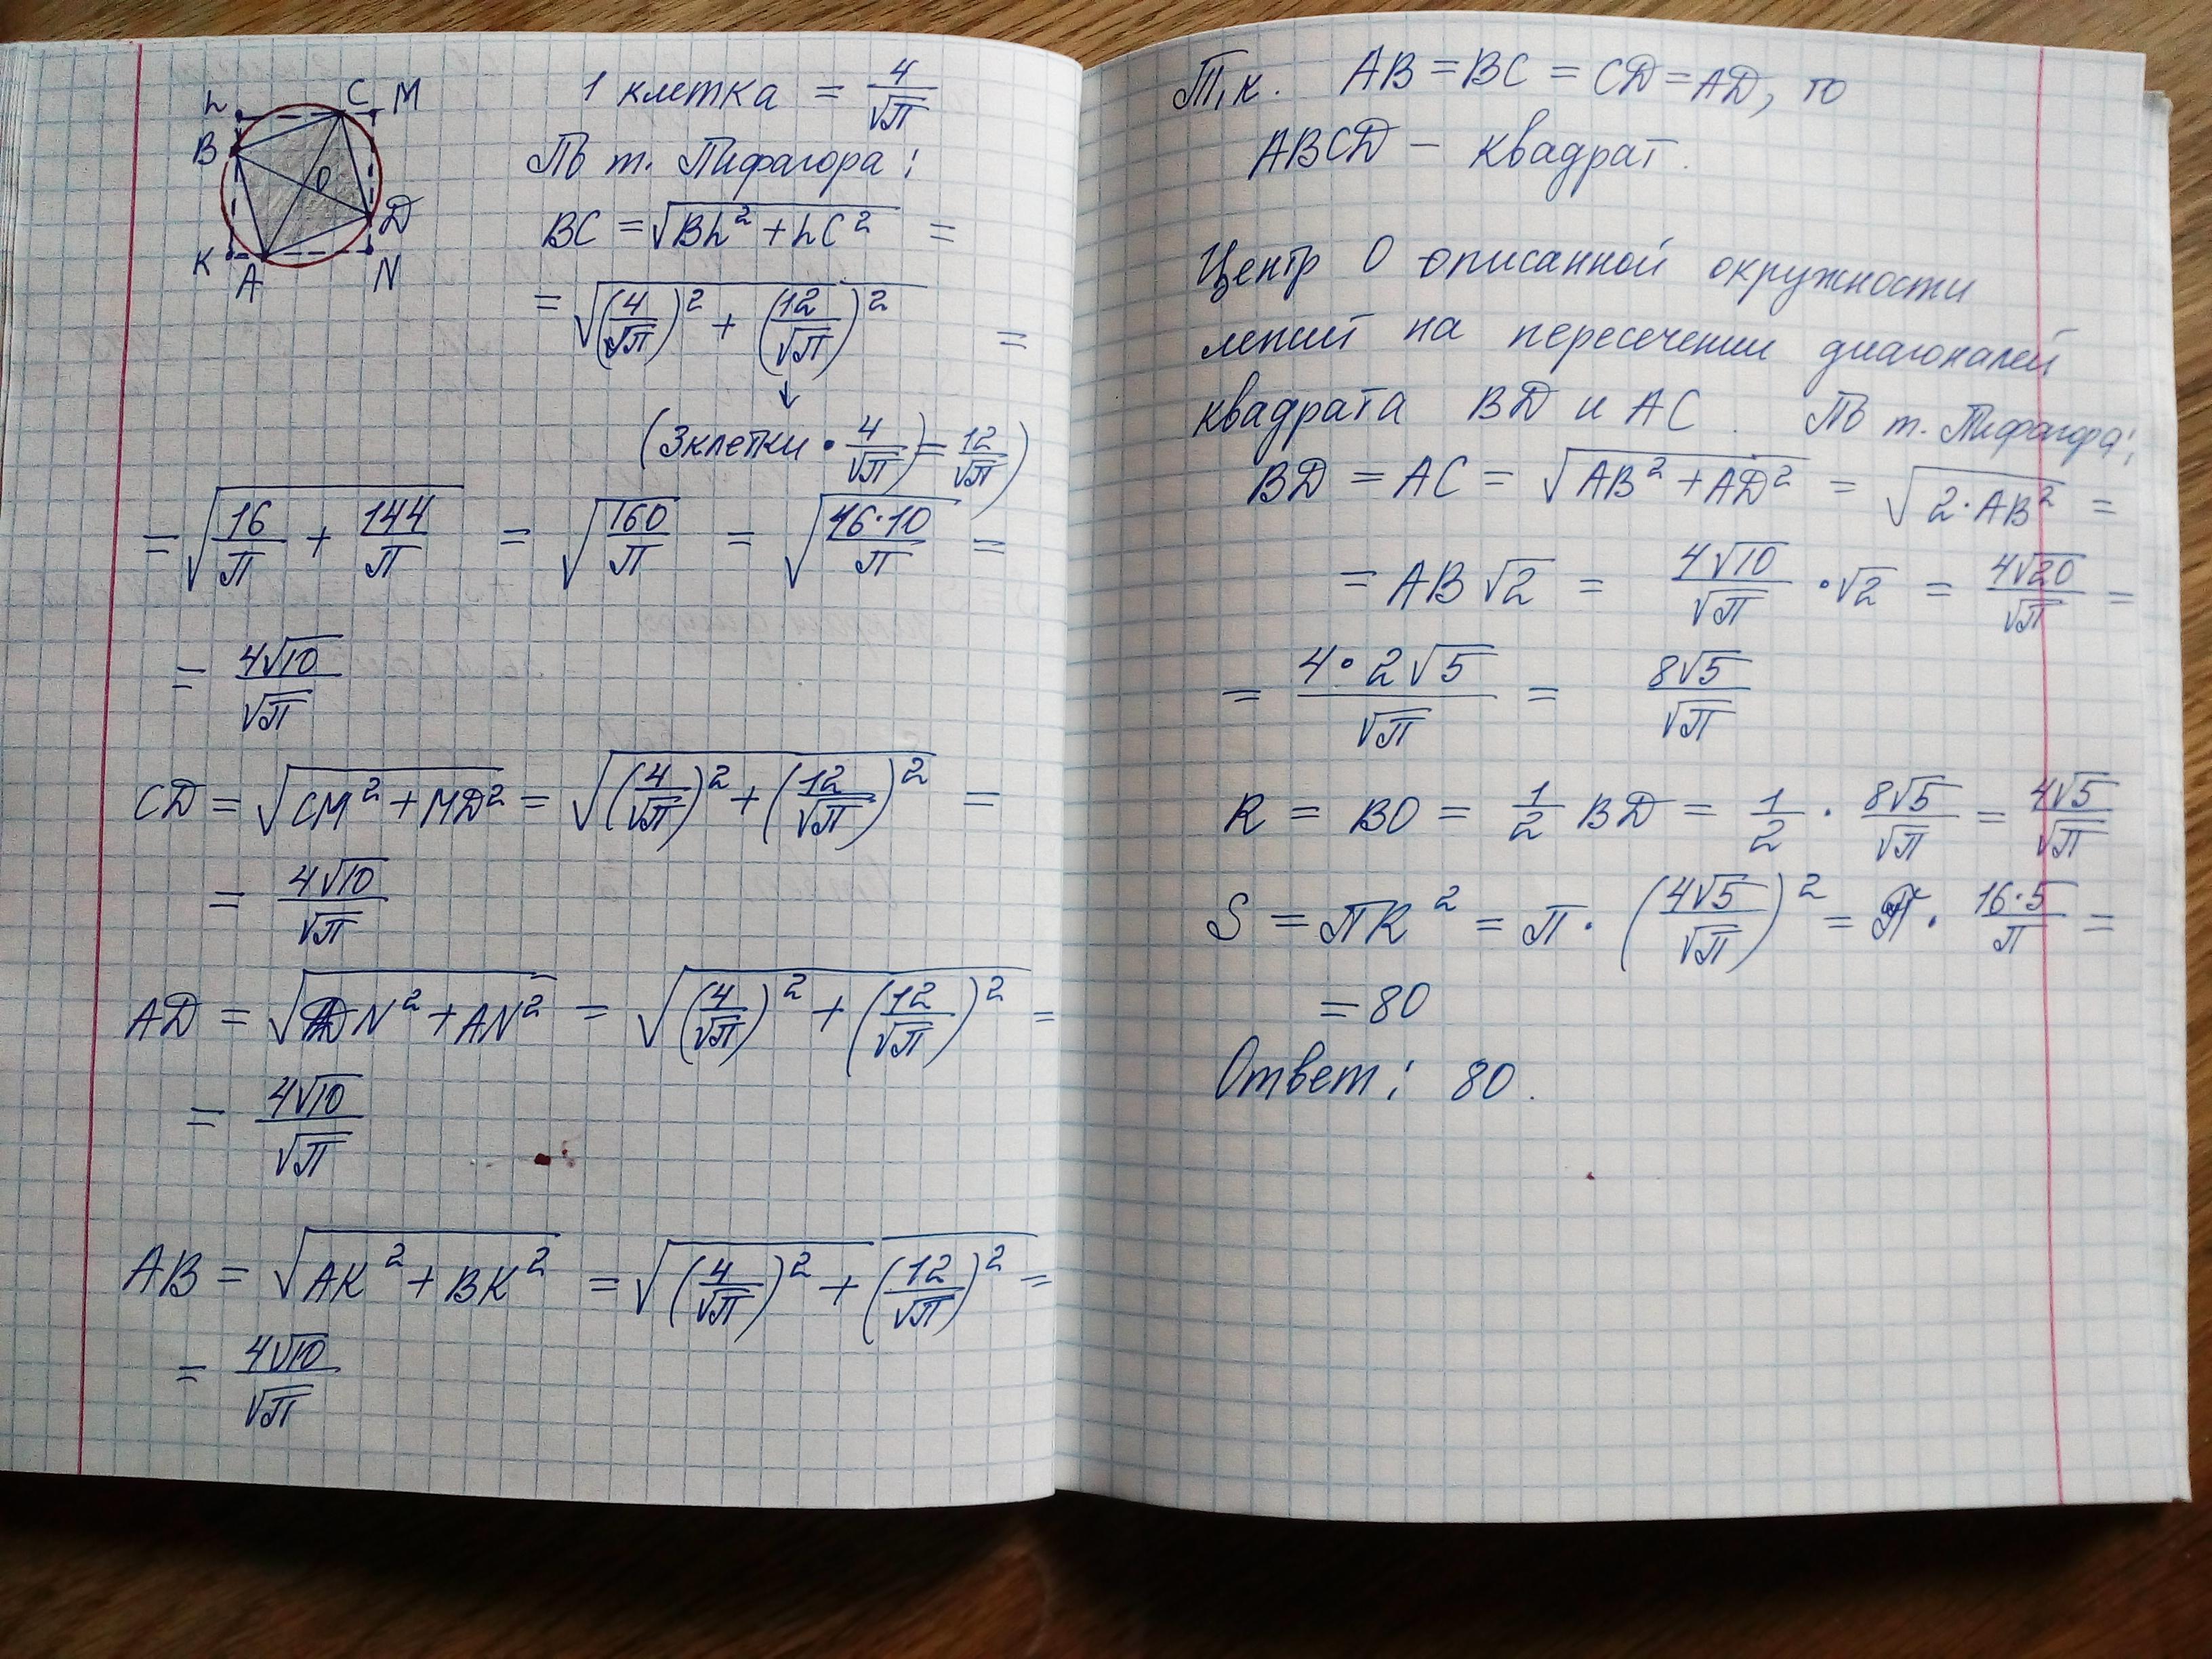 L C M
B O D
K A N
1 клетка = 4/√П
По т. Пифагора:
BC = √(BL² + LC²) =
= √((4/√П)² + (12/√П)²) =
↓
(3 клетки · 4/√П) = 12/√П)
= √(16/П + 144/П) = √(160/П) = √(16·10/П) =
= 4√10/√П
CD = √(CM² + MD²) = √((4/√П)² + (12/√П)²) =
= 4√10/√П
AD = √(DN² + AN²) = √((4/√П)² + (12/√П)²) =
= 4√10/√П
AB = √(AK² + BK²) = √((4/√П)² + (12/√П)²) =
= 4√10/√П
Т.к. AB = BC = CD = AD, то
ABCD – квадрат.
Центр O описанной окружности
лежит на пересечении диагоналей
квадрата BD и AC. По т. Пифагора:
BD = AC = √(AB² + AD²) = √(2·AB²) =
= AB√2 = 4√10/√П · √2 = 4√20/√П =
= 4·2√5/√П = 8√5/√П
R = BO = 1/2 BD = 1/2 · 8√5/√П = 4√5/√П
S = ПR² = П · (4√5/√П)² = П · 16·5/П =
= 80
Ответ: 80.